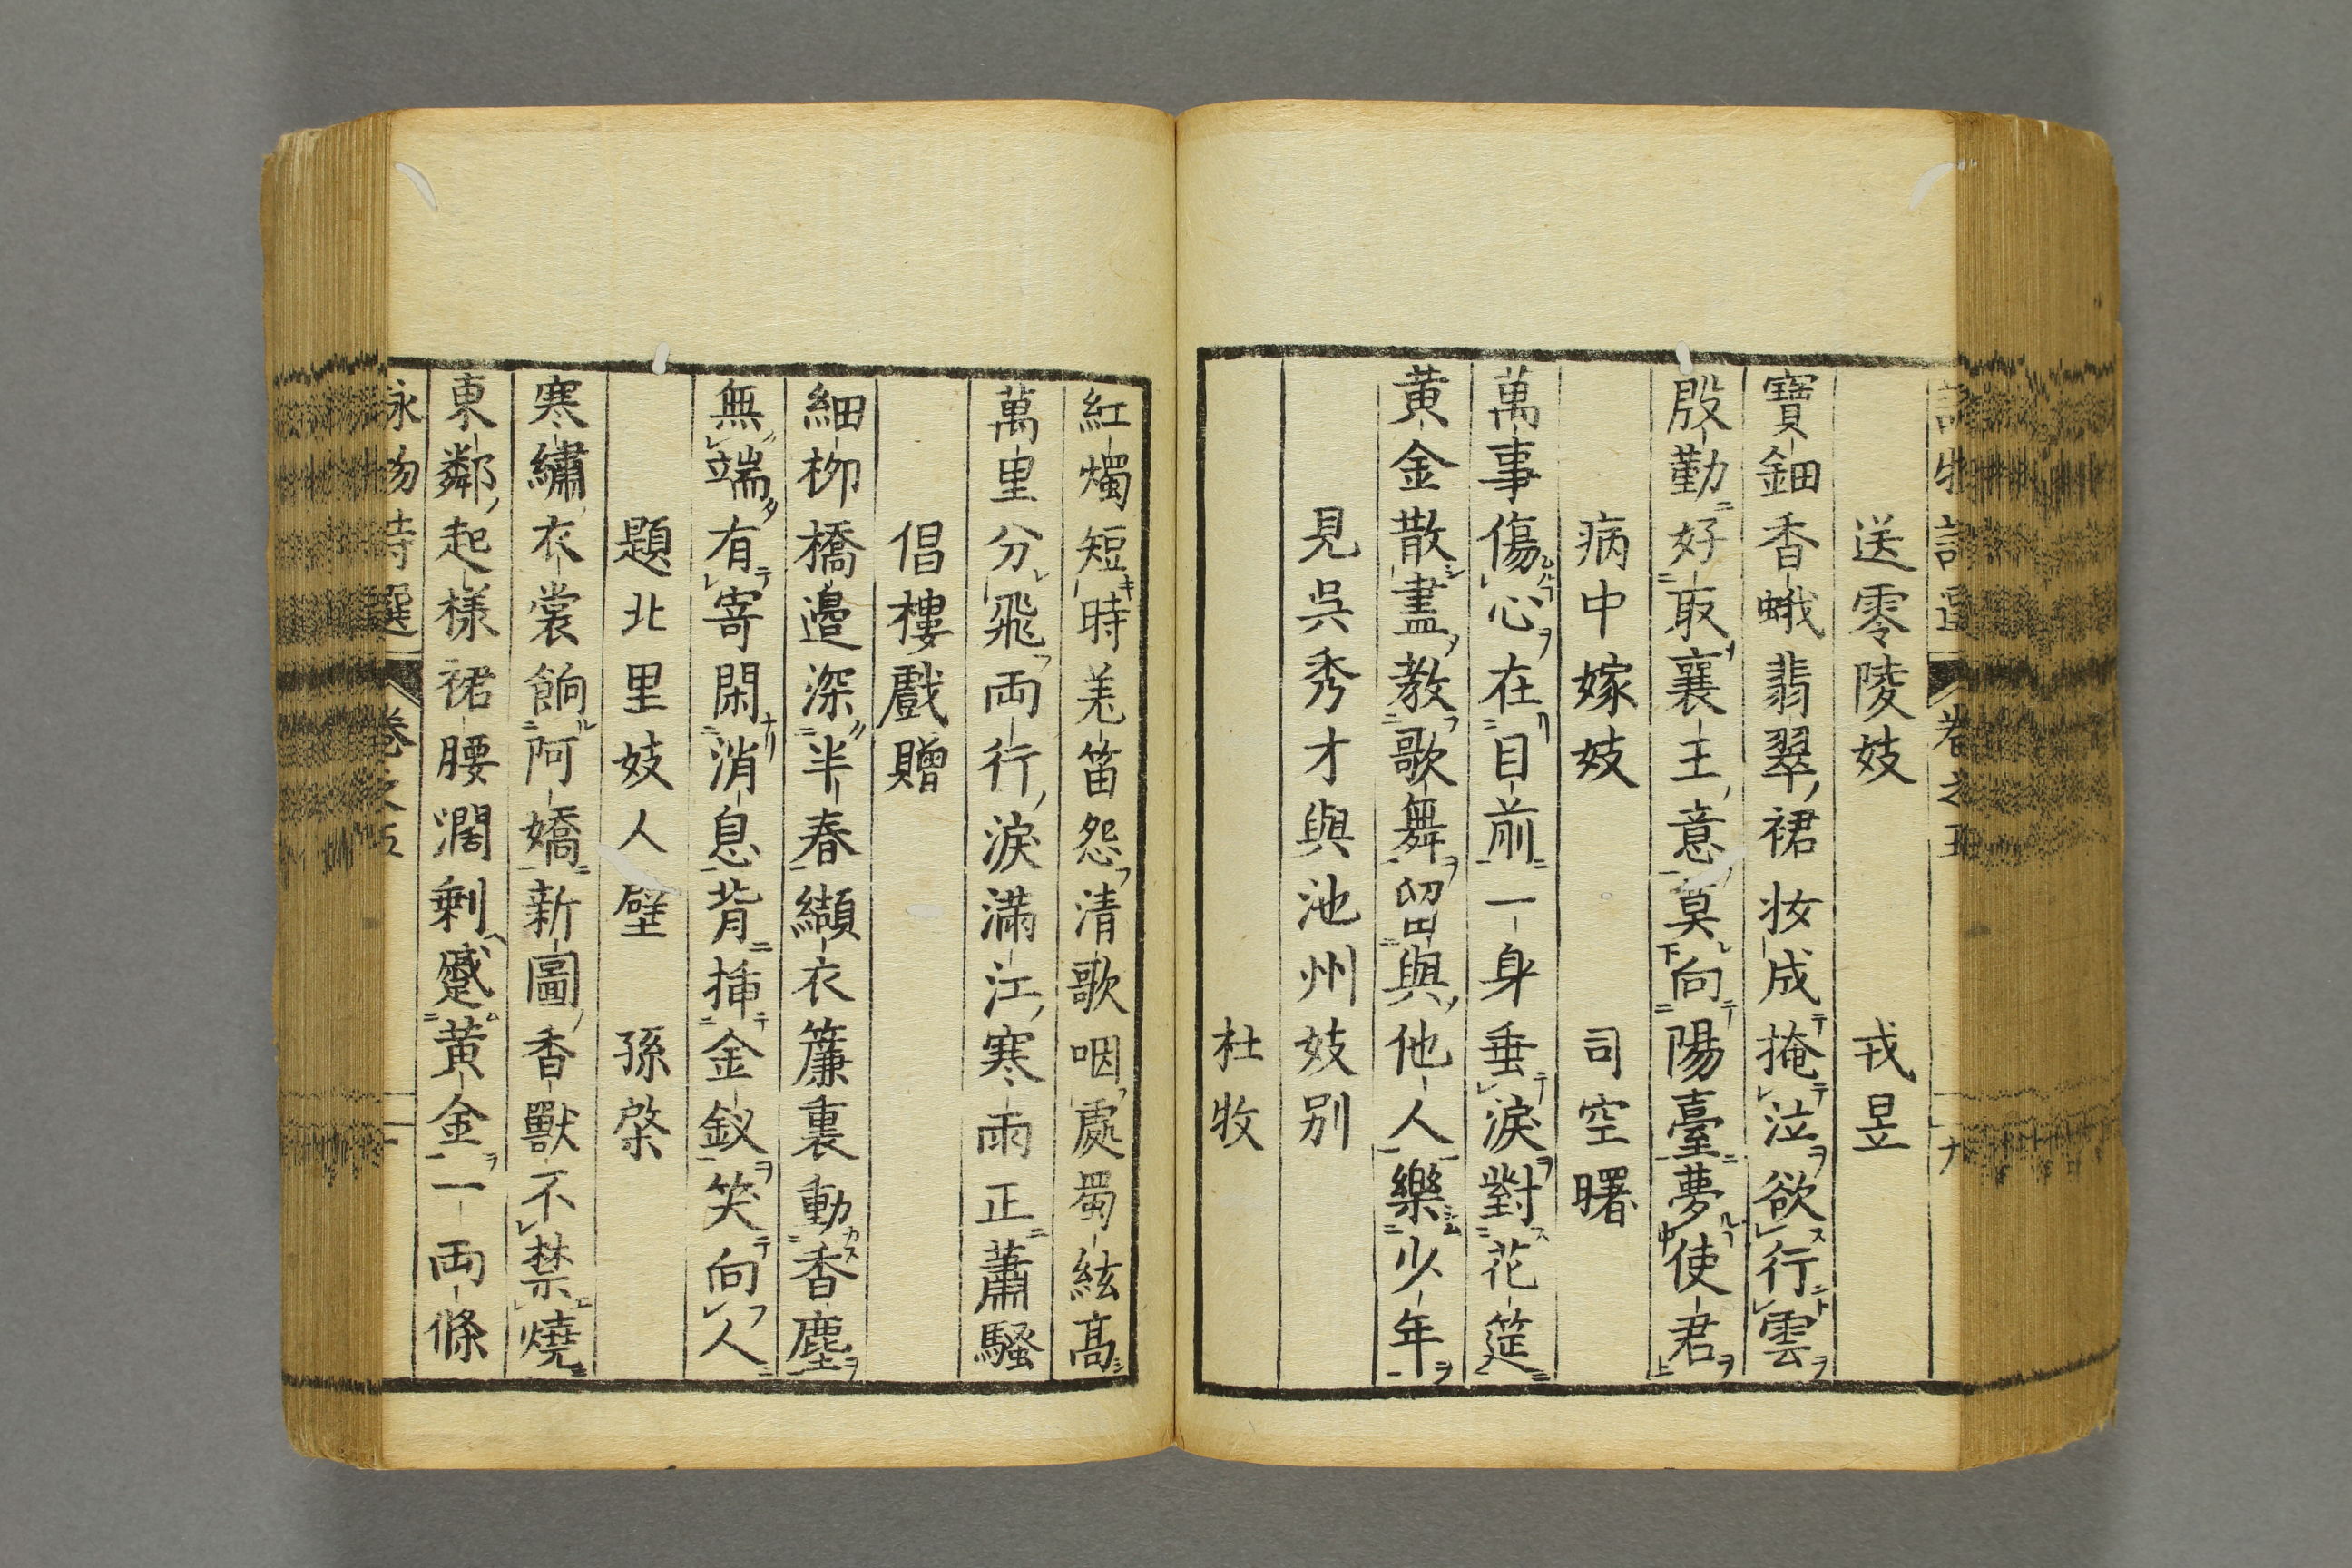 送零陵妓 戎昱
寶鈿香蛾翡翠裙妝成掩泣欲行雲
殷勤好取襄王意莫向陽臺夢使君
病中嫁妓 司空曙
萬事傷心在目前一身垂淚對花筵
黃金散盡教歌舞留與他人樂少年
見吳秀才與池州妓別
杜牧
紅燭短時羌笛怨清歌咽處蜀絃高
萬里分飛両行淚滿江寒雨正蕭騷
倡樓戲贈
細柳橋邊深半春纈衣簾裏動香塵
無端有寄閑消息背插金釵笑向人
題北里妓人壁 孫棨
寒繡衣裳餉阿嬌新圖香獸不禁燒
東鄰起樣裙腰濶剩蹙黃金一両條
詠物詩選 卷之五